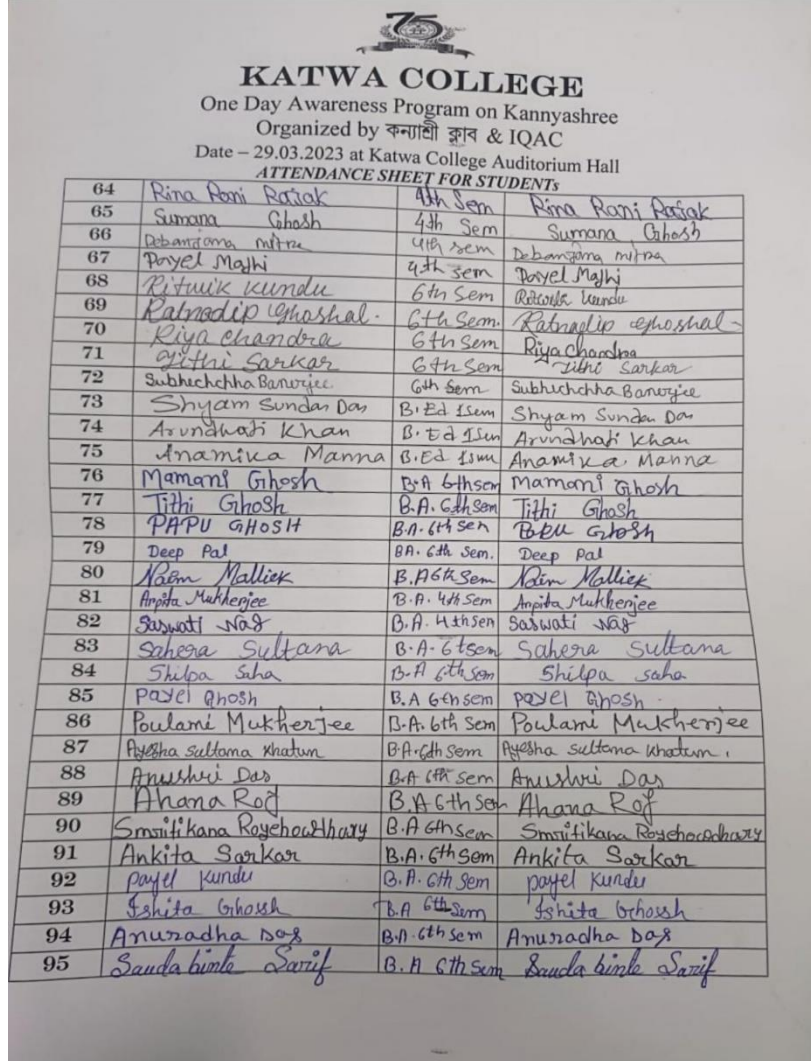 75
KATWA COLLEGE
One Day Awareness Program on Kannyashree
Organized by কন্যাশ্রী ক্লাব & IQAC
Date – 29.03.2023 at Katwa College Auditorium Hall
ATTENDANCE SHEET FOR STUDENTs
64 Rina Rani Rajak 4th Sem Rina Rani Rajak
65 Sumana Ghosh 4th Sem Sumana Ghosh
66 Debanjana mitra 4th sem Debanjana mitra
67 Payel Majhi 4th sem Payel Majhi
68 Ritwik kundu 6th Sem Ritwik kundu
69 Ratnadip Ghoshal. 6th Sem. Ratnadip Ghoshal
70 Riya chandra 6th sem Riya chandra
71 Tithi Sarkar 6th Sem Tithi Sarkar
72 Subhechchha Banerjee 6th sem Subhechchha Banerjee
73 Shyam Sundar Das B.Ed 1sem Shyam Sundar Das
74 Arundhati Khan B.Ed 1sem Arundhati Khan
75 Anamika Manna B.Ed 1sem Anamika Manna
76 Mamani Ghosh B.A 6th sem Mamani Ghosh
77 Tithi Ghosh B.A. 6th Sem Tithi Ghosh
78 PAPU GHOSH B.A. 6th sen Ghosh
79 Deep Pal BA. 6th Sem. Deep Pal
80 Naim Mallick B.A 6th Sem Naim Mallick
81 Arpita Mukherjee B.A. 4th Sem Arpita Mukherjee
82 Saswati Nag B.A. 4th sen Saswati Nag
83 Sahera Sultana B.A. 6tsem Sahera Sultana
84 Shilpa Saha B.A 6th Sem Shilpa saha
85 payel Ghosh B.A 6th sem payel Ghosh
86 Poulami Mukherjee B.A. 6th Sem Poulami Mukherjee
87 Ayesha sultana khatun B.A. 6th Sem Ayesha sultana khatun.
88 Anushri Das B.A 6th Sem Anushri Das
89 Ahana Roy B.A 6th Sem Ahana Roy
90 Smritikana Roychowdhury B.A 6th sem Smritikana Roychowdhury
91 Ankita Sarkar B.A. 6th Sem Ankita Sarkar
92 payel kundu B.A. 6th Sem payel kundu
93 Ishita Ghosh B.A 6th Sem Ishita Ghosh
94 Anuradha Das B.A. 6th sem Anuradha Das
95 Sauda binte Sarif B.A 6th Sem Sauda binte Sarif